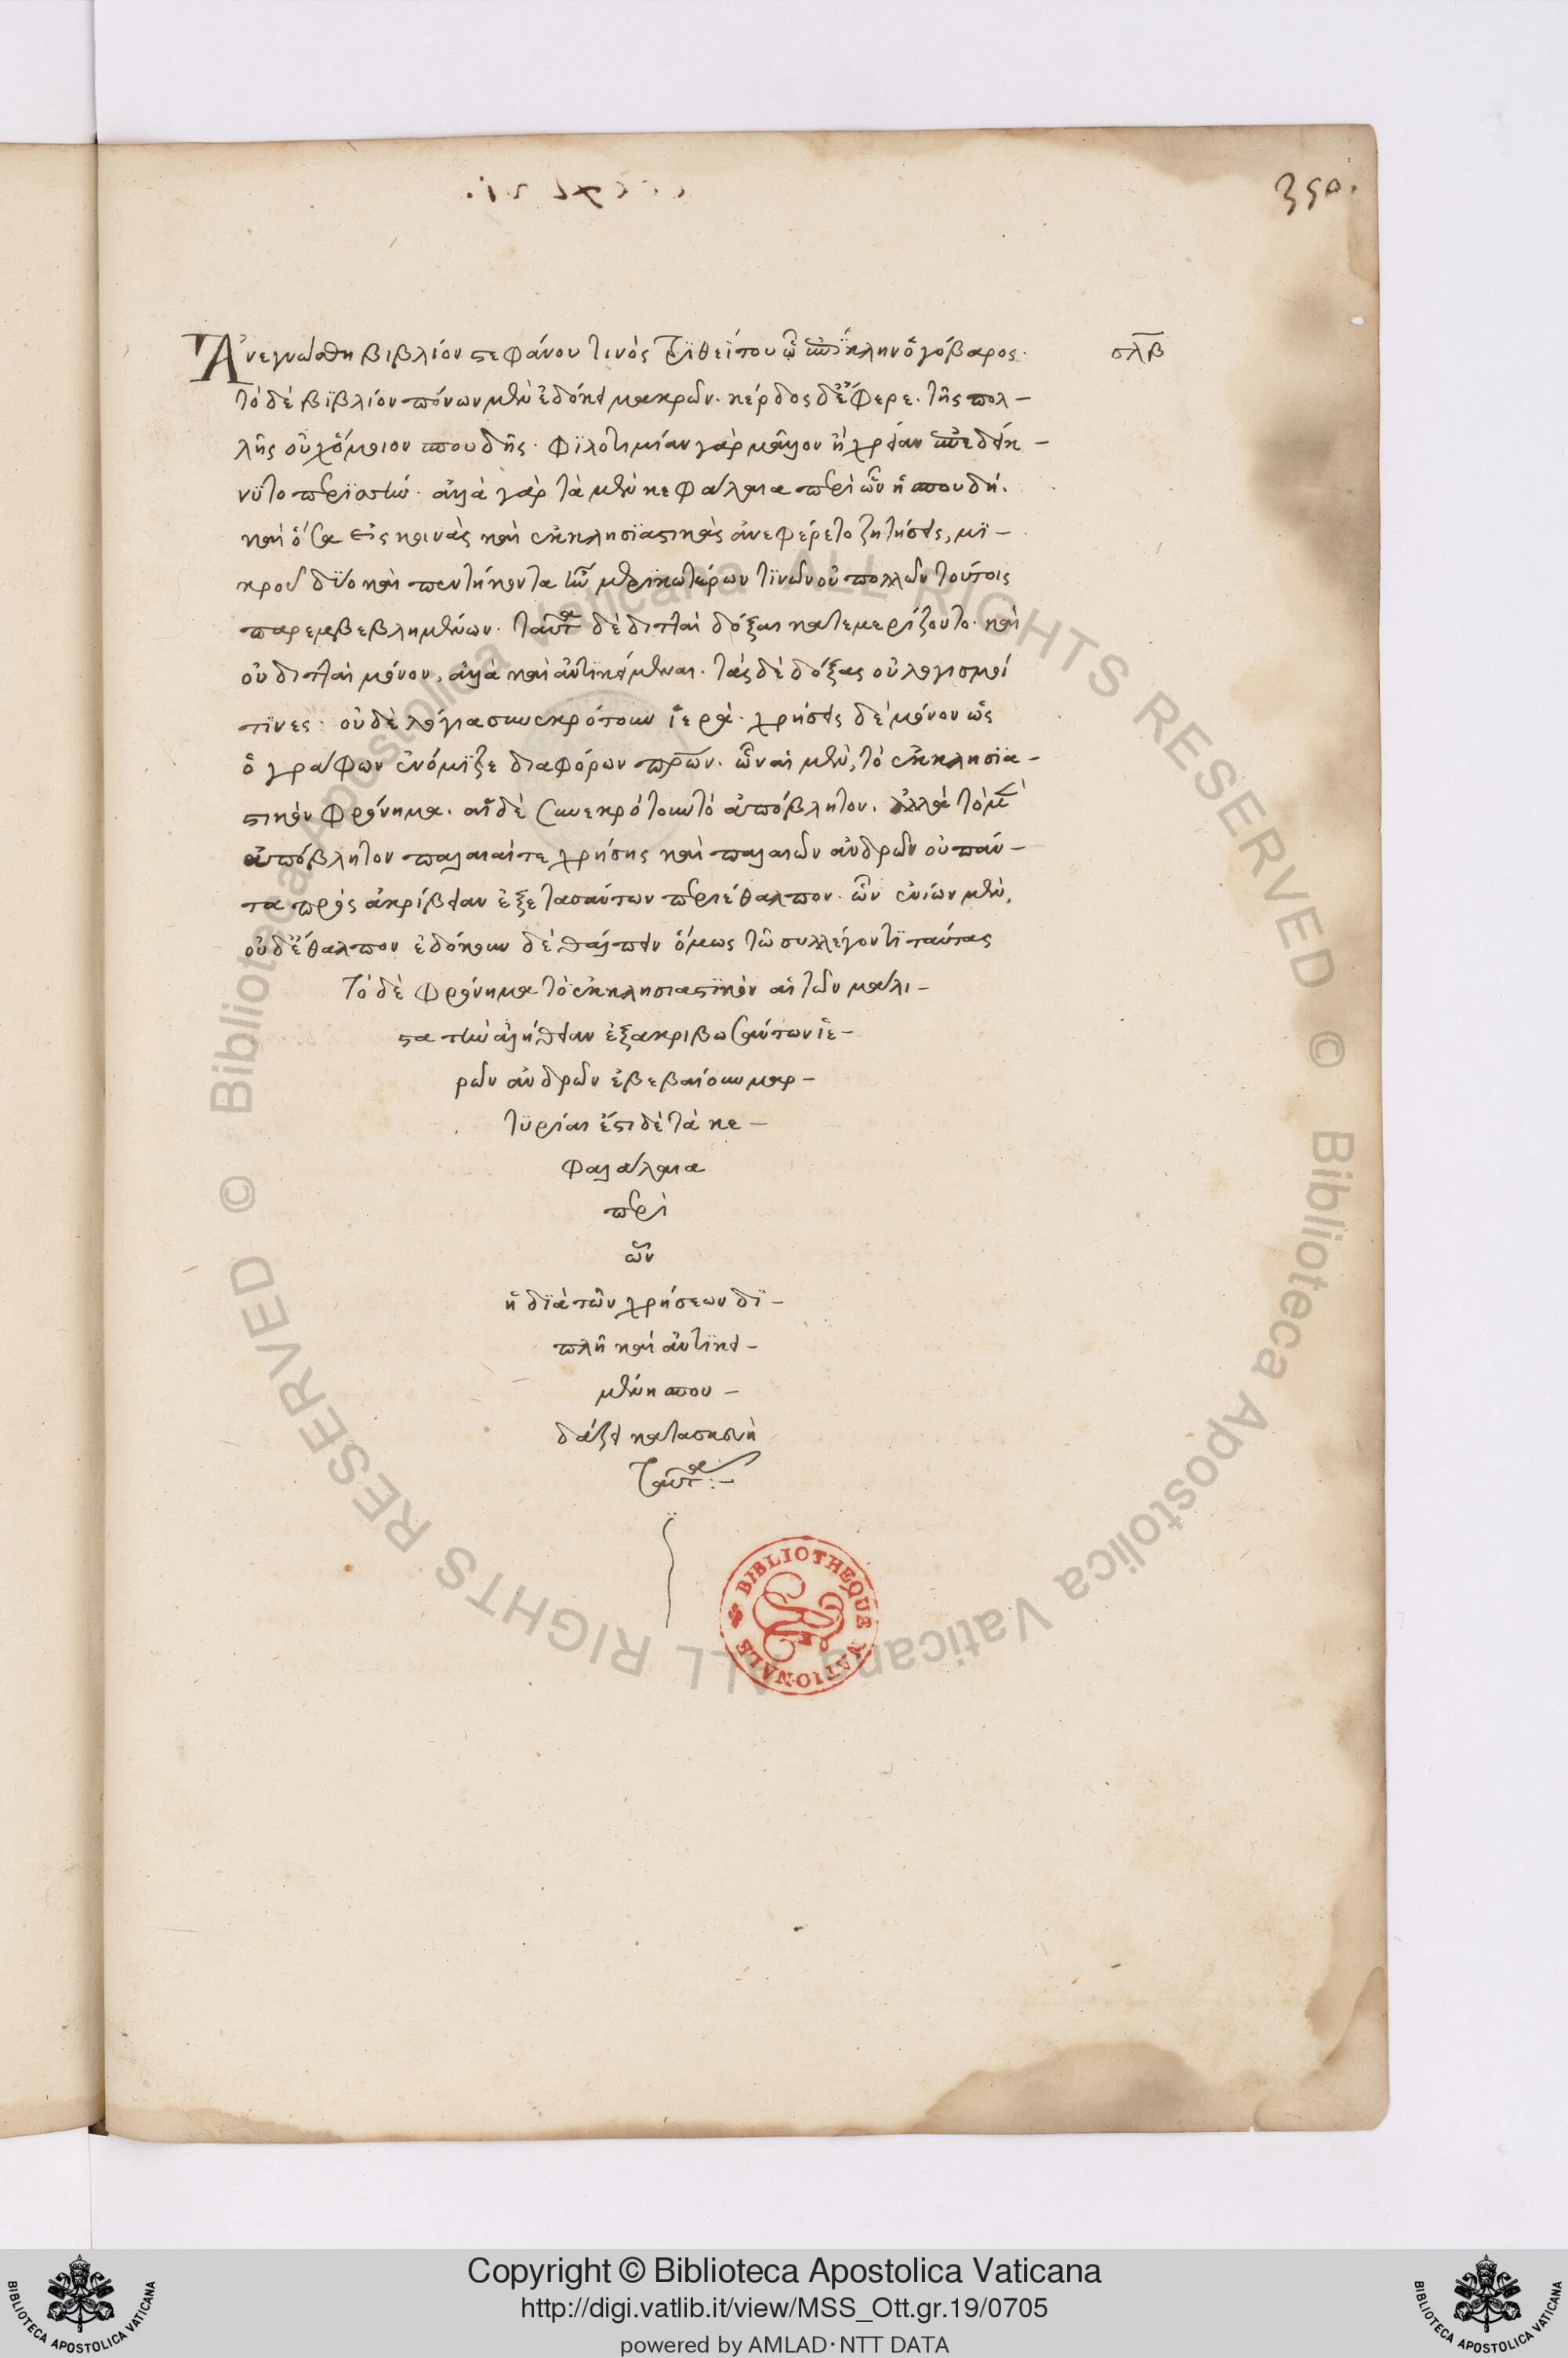 350.
Ἀνεγνώσθη βιβλίον στεφάνου τινὸς τριθεΐτου ὧ ἐπίκλην ὁ γόβαρος· σλβ
τὸ δὲ βιβλίον πόνων μὲν ἐδόκει μακρῶν. κέρδος δὲ ἔφερε. τῆς πολ-
λῆς οὐχ ὅμοιον σπουδῆς· φιλοτιμίαν γὰρ μᾶλλον ἢ χρείαν ἐπεδείκ-
νυτο περιαστήν· ἀλλὰ γὰρ τὰ μὲν κεφάλαια περὶ ὧν ἡ σπουδή.
καὶ ὅσα εἰς κοινὰς καὶ ἐκκλησιαστικὰς ἀνεφέρετο ζητήσεις, μι-
κροῦ δύο καὶ πεντήκοντα ἦν μερικωτέρων τινῶν οὐ πολλῶν τούτοις
παρεμβεβλημένων. ταῦτα δὲ διπλαῖ δόξαι κατεμερίζοντο. καὶ
οὐ διπλαῖ μόνον, ἀλλὰ καὶ ἀντικείμεναι. τὰς δὲ δόξας οὐ λογισμοί
τινες· οὐδὲ λόγια συνεκρότουν ἱερά. χρήσεις δὲ μόνον ὡς
ὁ γράφων ἐνόμιζε διαφόρων πρων. ὧν αἱ μὲν, τὸ ἐκκλησια-
στικὸν φρόνημα. αἱ δὲ συνεκρότουν τὸ ἀπόβλητον. ἀλλὰ τὸ μὲν
ἀπόβλητον παλαιαί τε χρήσεις καὶ παλαιῶν ἀνδρῶν οὐ πάν-
τα πρὸς ἀκρίβειαν ἐξετασάντων περιέθαλπον. ὧν ἐνίων μὲν,
οὐδὲ ἔθαλπον ἐδόκουν δὲ θάλπειν ὅμως τῷ συλλέγοντι ταύτας
Τὸ δὲ φρόνημα τὸ ἐκκλησιαστικὸν αἱ τῶν μάλι-
στα τὴν ἀλήθειαν ἐξακριβωσάντων ἱε-
ρῶν ἀνδρῶν ἐβεβαίουν μαρ-
τυρίαι ἔστι δὲ τὰ κε-
φαλάλαια
περὶ
ὧν
ἡ διὰ τῶν χρήσεων δι-
πλῆ καὶ ἀντικει-
μένη σπου-
δάζει κατασκευὴ
ταῦτα:-
BIBLIOTHEQUE NATIONALE
© Biblioteca Apostolica Vaticana ALL RIGHTS RESERVED © Biblioteca Apostolica Vaticana ALL RIGHTS RESERVED
BIBLIOTECA APOSTOLICA VATICANA
Copyright © Biblioteca Apostolica Vaticana
http://digi.vatlib.it/view/MSS_Ott.gr.19/0705
powered by AMLAD·NTT DATA
BIBLIOTECA APOSTOLICA VATICANA